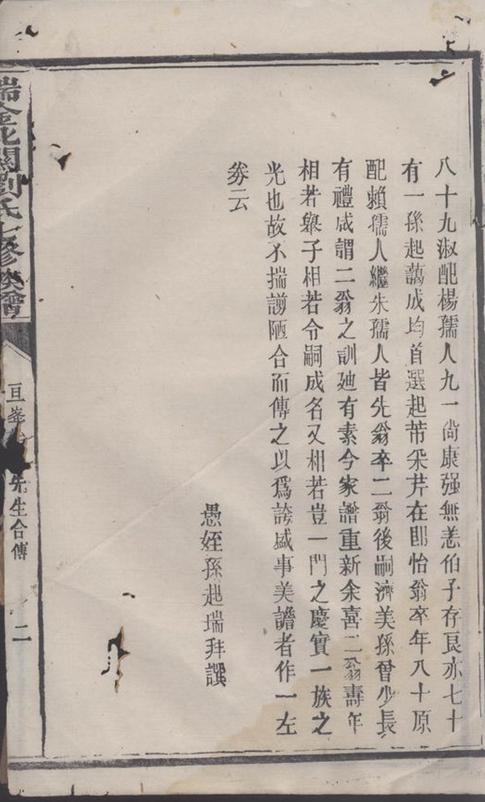 八十九淑配楊孺人九一尙康强無恙伯子存良亦七十
有一孫起藹成均首選起芾采芹在卽怡翁卒年八十原
配賴孺人繼朱孺人皆先翁卒二翁後嗣濟美孫曾少長
有禮咸謂二翁之訓廸有素今家譜重新余喜二翁壽年
相若舉子相若令嗣成名又相若豈一門之慶實一族之
光也故不揣謭陋合而傳之以爲誇盛事美譫者作一左
券云
愚姪孫起瑞拜譔
瑞金北關劉氏七修族譜
亘峯 先生合傳
二